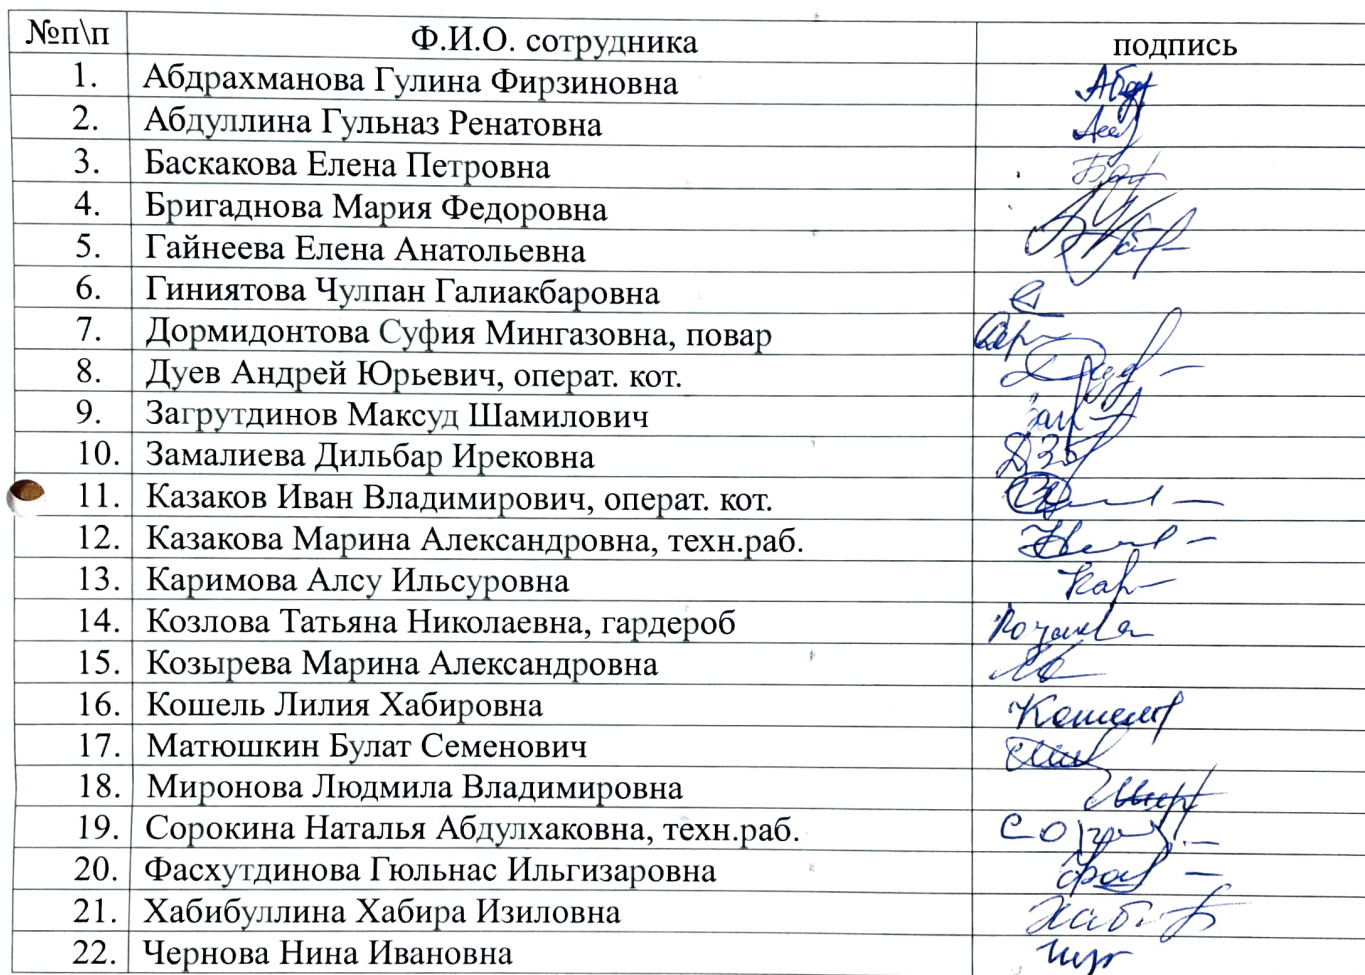 №п\п Ф.И.О. сотрудника подпись
1. Абдрахманова Гулина Фирзиновна
2. Абдуллина Гульназ Ренатовна
3. Баскакова Елена Петровна
4. Бригаднова Мария Федоровна
5. Гайнеева Елена Анатольевна
6. Гиниятова Чулпан Галиакбаровна
7. Дормидонтова Суфия Мингазовна, повар
8. Дуев Андрей Юрьевич, операт. кот.
9. Загрутдинов Максуд Шамилович
10. Замалиева Дильбар Ирековна
11. Казаков Иван Владимирович, операт. кот.
12. Казакова Марина Александровна, техн.раб.
13. Каримова Алсу Ильсуровна
14. Козлова Татьяна Николаевна, гардероб
15. Козырева Марина Александровна
16. Кошель Лилия Хабировна
17. Матюшкин Булат Семенович
18. Миронова Людмила Владимировна
19. Сорокина Наталья Абдулхаковна, техн.раб.
20. Фасхутдинова Гюльнас Ильгизаровна
21. Хабибуллина Хабира Изиловна
22. Чернова Нина Ивановна